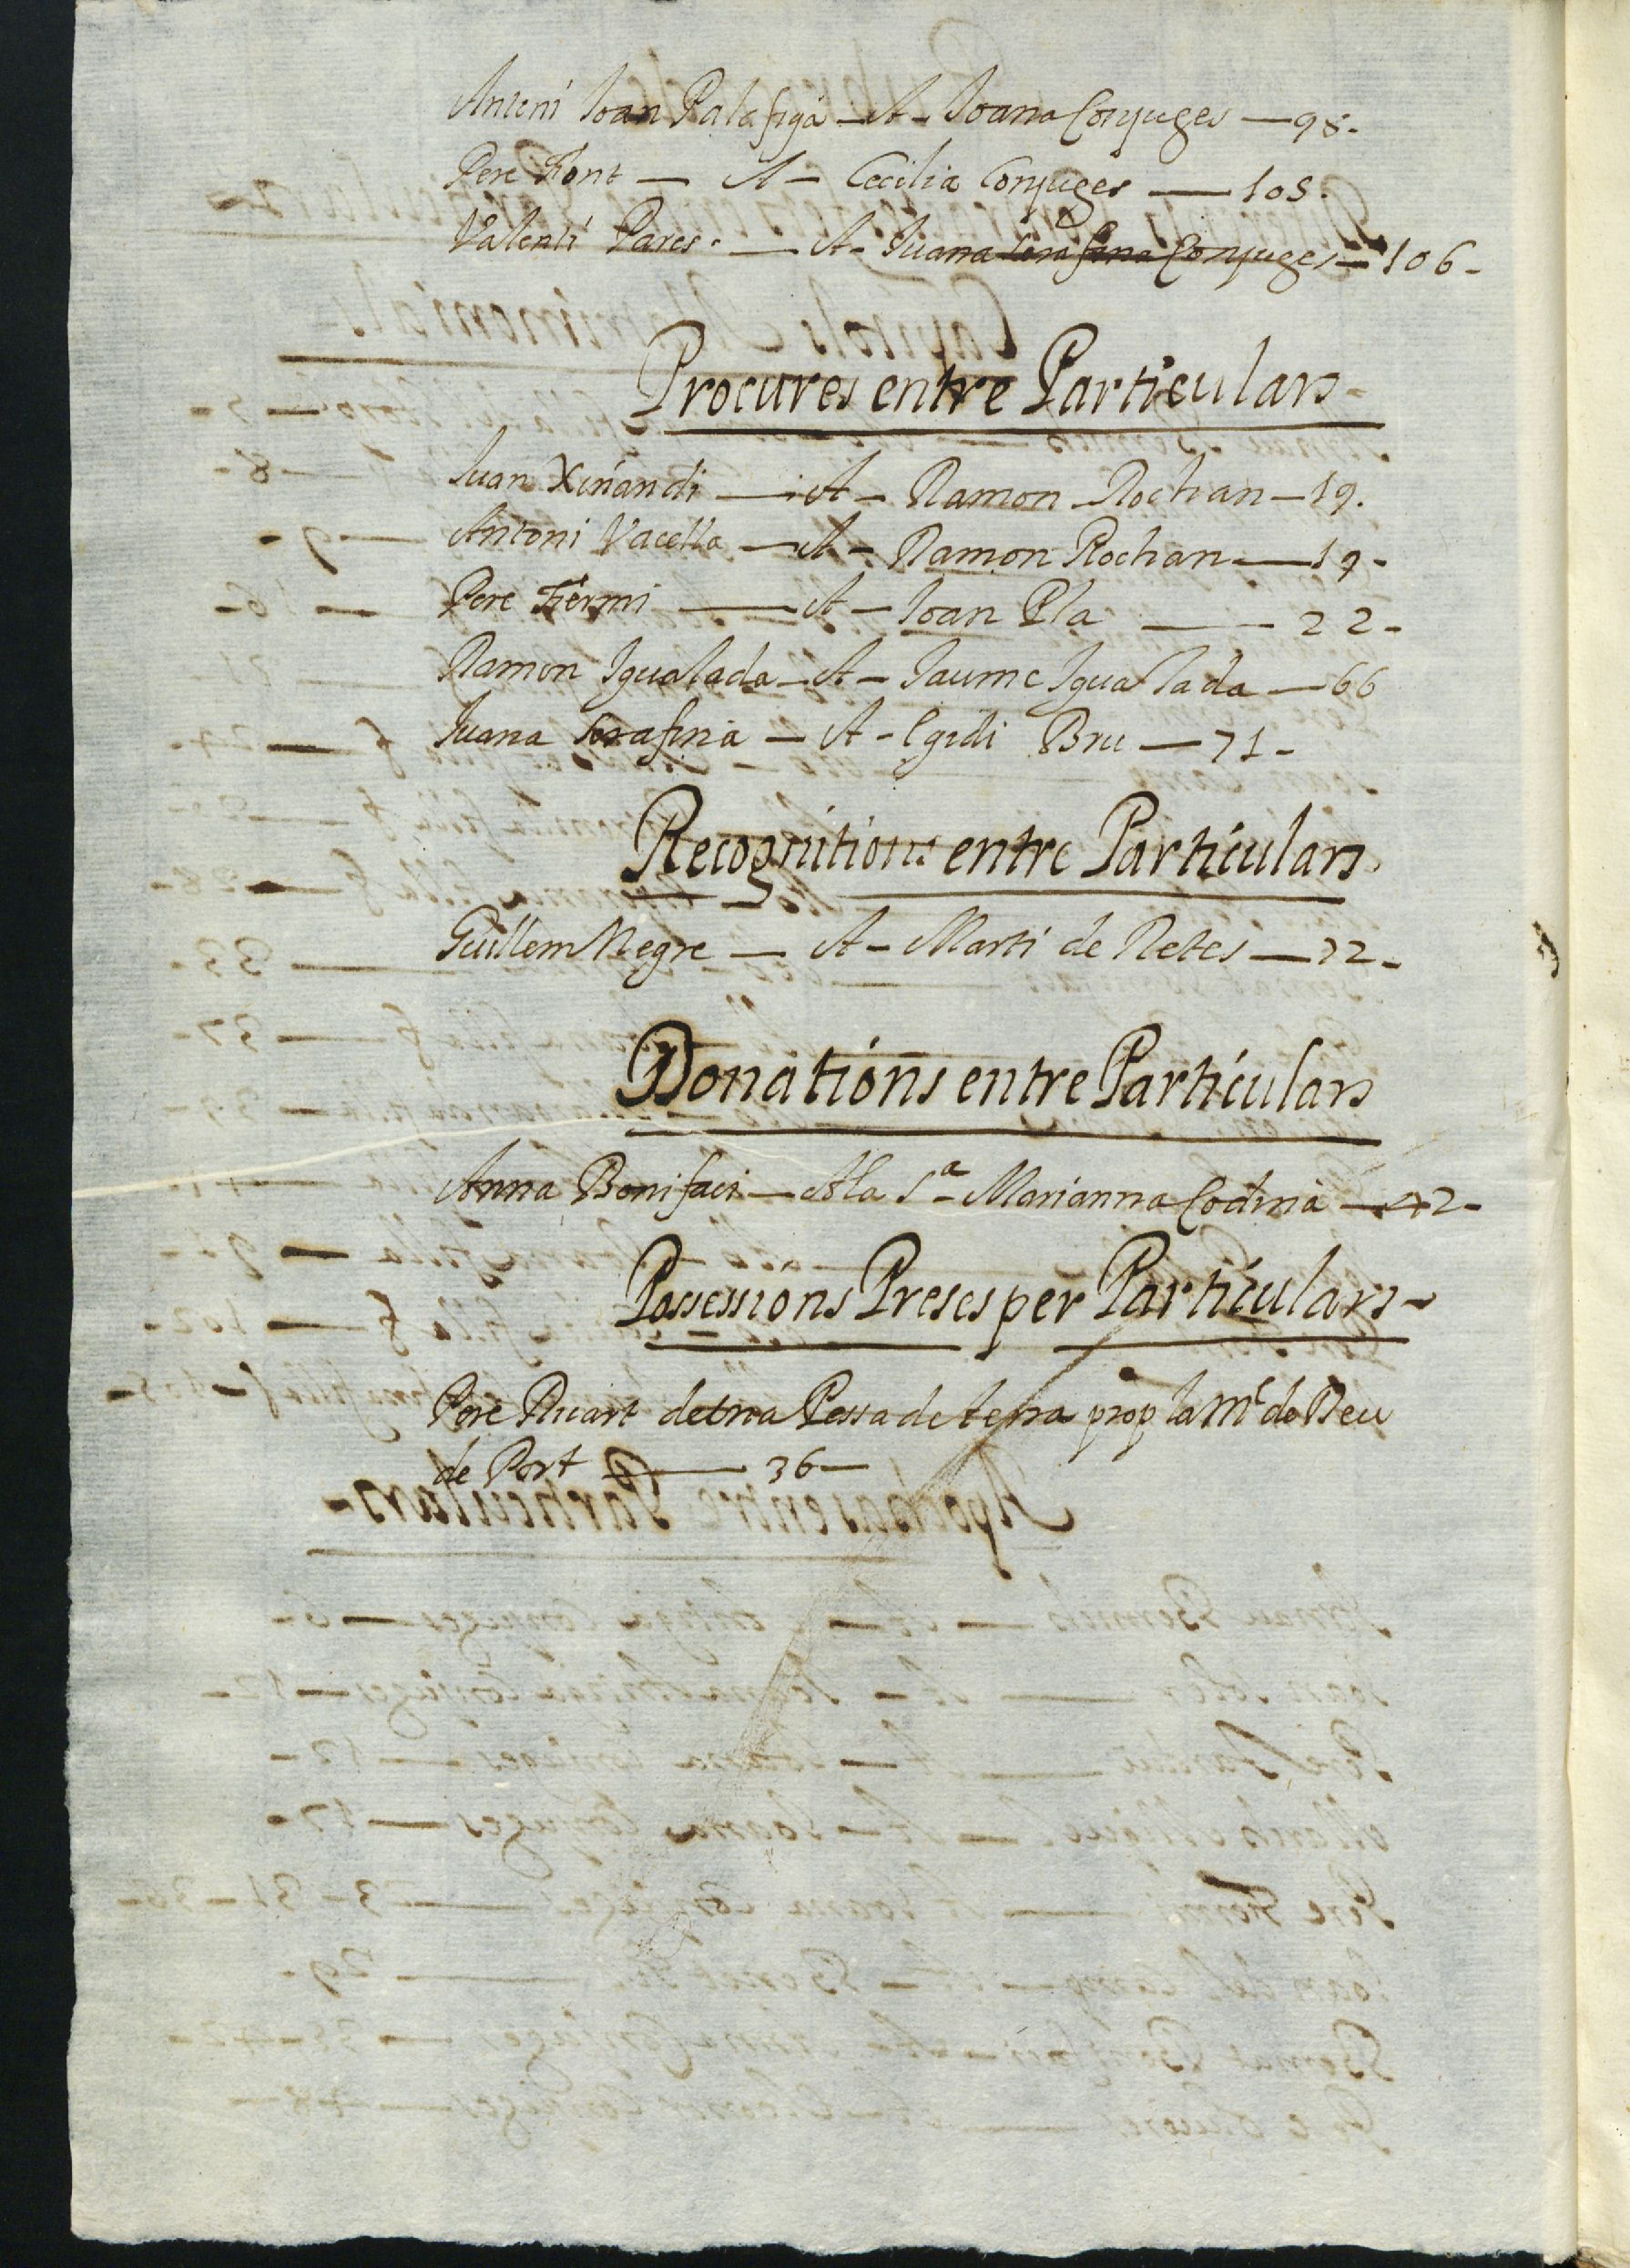 Antoni Joan Palafigà — A — Joana Conjuges — 98 -
Pere Font — A — Cecilia Conjuges — 105.
Valenti Pares. — A — Juana Serafina Conjuges — 106 -
Procures entre Particulars -
Juan Xirinandi — A — Ramon Rochan — 19.
Antoni Vacella — A — Ramon Rochan — 19 -
Pere Fermi — A — Joan Pla — 22 -
Ramon Igualada — A — Jaume Igualada — 66
Juana Serafina — A — Egidi Bru — 71 -
Recognitions entre Particulars.
Guillem Negre — A — Marti de Retes — 72 -
Donations entre Particulars
Anna Bonifaci — A la Sª Marianna Codina — 42 -
Possessions Preses per Particulars -
Pere Ricart de una Pessa de terra prop la Mᵉ de Deu
de Port — 36 —